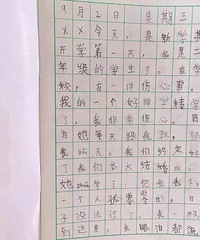 9月2日 星期三
××今天，是新学
开学第一天，我是二
年级的学生了。在学
校，有一件伤心事，
我的一个好同学转学
了，我非常伤心
为她每天跟我玩
我的
了我们长大结婚的
她
一个人孤零零的，日
子没法过了，我一
到这里，眼泪都流